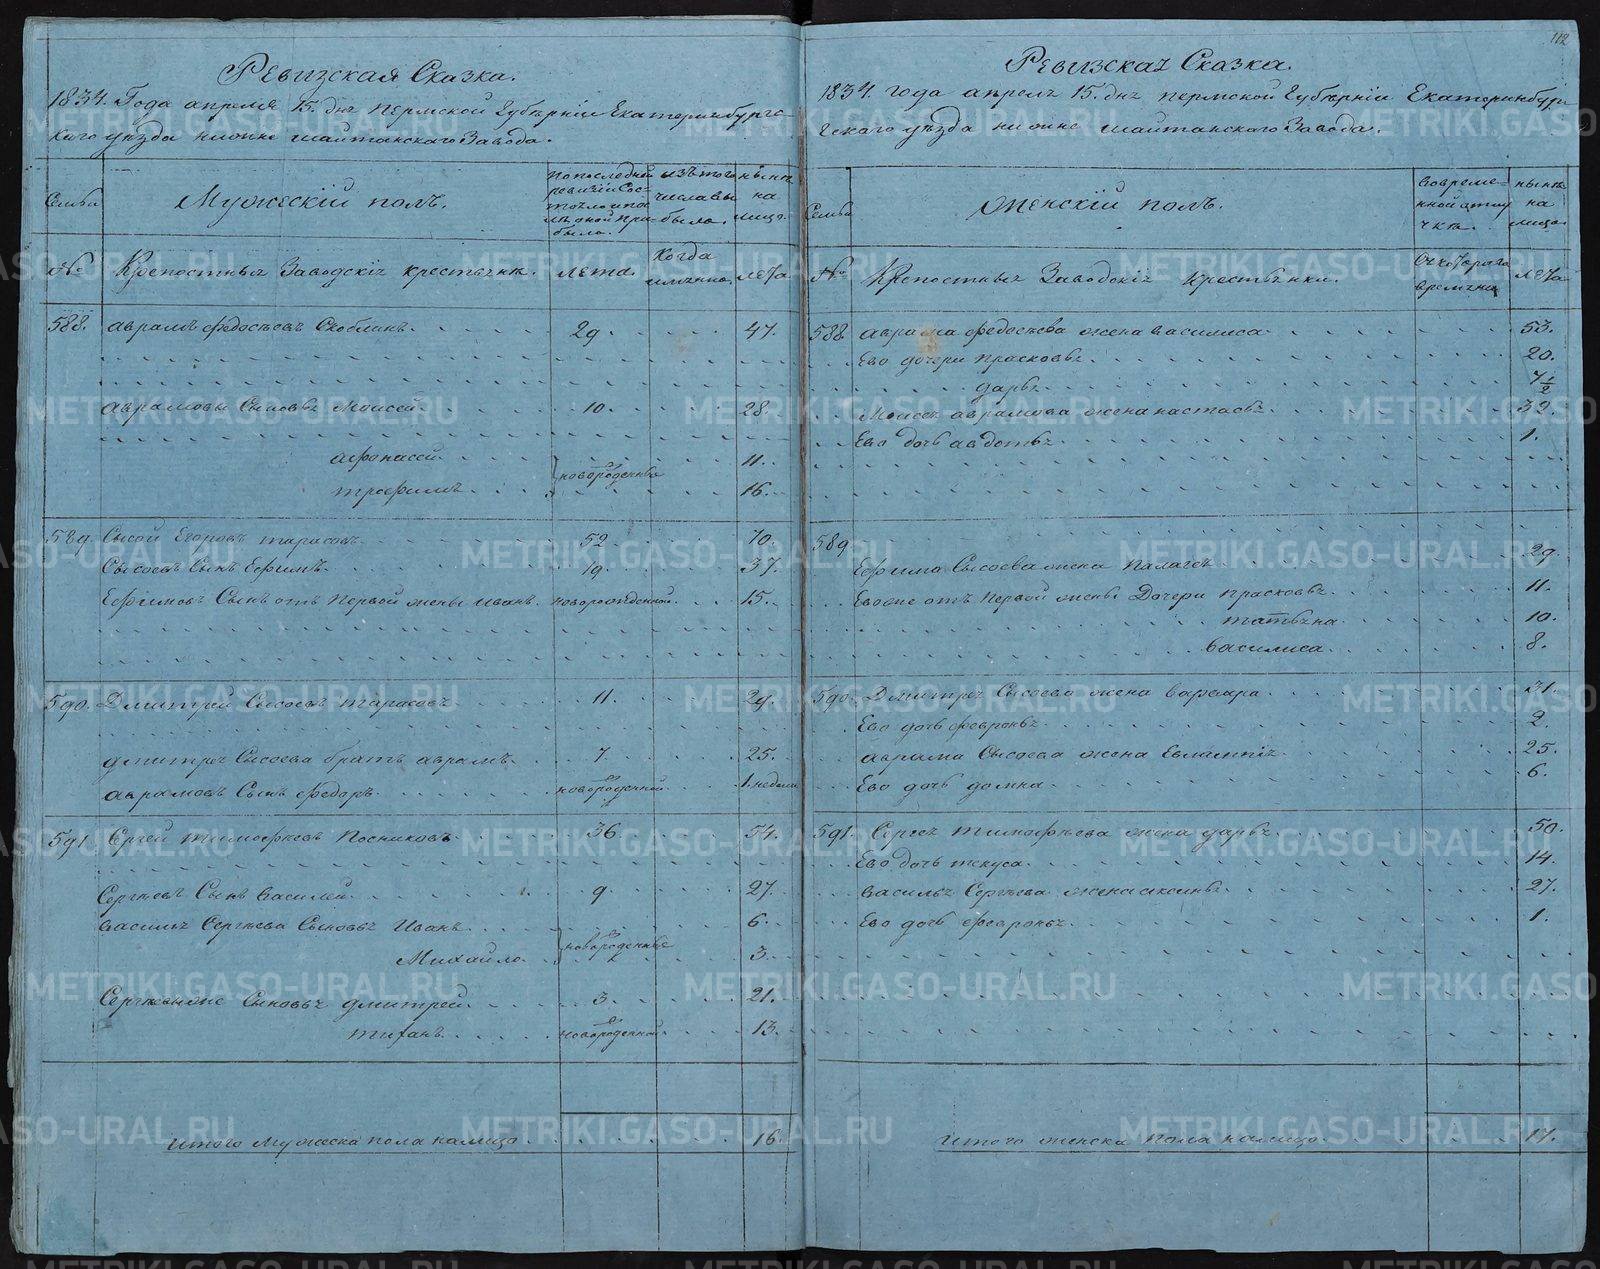 Ревизская Сказка.
1834. Года апреля 15. дня пермской губѣрнiи Екатеринбургс-
каго уѣзда нижне шайтанскаго Завода.
Семьи
Мужескiй полъ.
по последней ревизiи Состояло и после оной прибыло.
изъ того числа выбыло.
нынѣ на лицо.
№
Крепостныя Заводскiя крестьяня.
лета.
Когда именно.
лета
588. аврамъ федосѣевъ Скоблинъ. 29 47.
аврамовы Сыновья Моисей. 10. 28.
афонасей. 11.
новорожденные
трофимъ. 16.
589. Сысой Егоровъ тарасовъ. 52 70.
Сысоевъ Сынъ Ефимъ. 19. 37.
Ефимовъ Сынъ отъ первой жены иванъ. новорожденной. 15.
590. Дмитрей Сысоевъ тарасовъ 11. 29.
дмитрея Сысоева братъ аврамъ. 7. 25.
аврамовъ Сынъ федоръ. новорожденной. 1. недели
591 Сергей тимофѣевъ Посниковъ 36. 54.
Сергѣевъ Сынъ василей. 9. 27.
василья Сергѣева Сыновья Иванъ. 6.
новорожденные
Михайло. 3.
Сергѣевы же Сыновья дмитрей. 3. 21.
тиханъ. новорожденной. 13.
итого мужеска пола налицо. 16.
112
Ревизская Сказка.
1834. года апреля 15. дня пермской губѣрнiи Екатеринбург
скаго уѣзда нижне шайтанскаго Завода.
Семьи
Женскiй полъ.
во временной отлучке.
нынѣ на лицо.
№
Крепостныя Заводскiя крестьянки.
Съ котораго времени
лета
588 аврама федосѣева жена василиса. 53.
Ево дочери прасковья. 20.
дарья. ½
Моисея аврамова жена настасья. 32.
Ево дочь авдотья. 1.
589.
Ефима Сысоева жена Палагея 29.
Ево же отъ первой жены Дочери прасковья. 11.
татьяна. 10.
василиса. 8.
590. Дмитрея Сысоева жена варвара. 31.
Ево дочь февронья. 2.
аврама Сысоева жена Евлампiя. 25.
Ево дочь домна. 6.
591. Сергея тимофѣева жена дарья. 50.
Ево дочь текуса. 14.
василья Сергѣева жена аксинья. 27.
Ево дочь февронья. 1.
итого женска пола налицо. 17.
METRIKI.GASO-URAL.RU